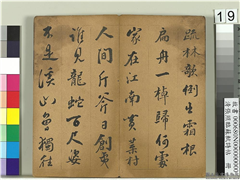 疏林欹倒出霜根
扁舟一棹歸何處
家在江南黃葉村
人間斤斧日創夷
誰見龍蛇百尺姿
不是溪山曾獨往
19